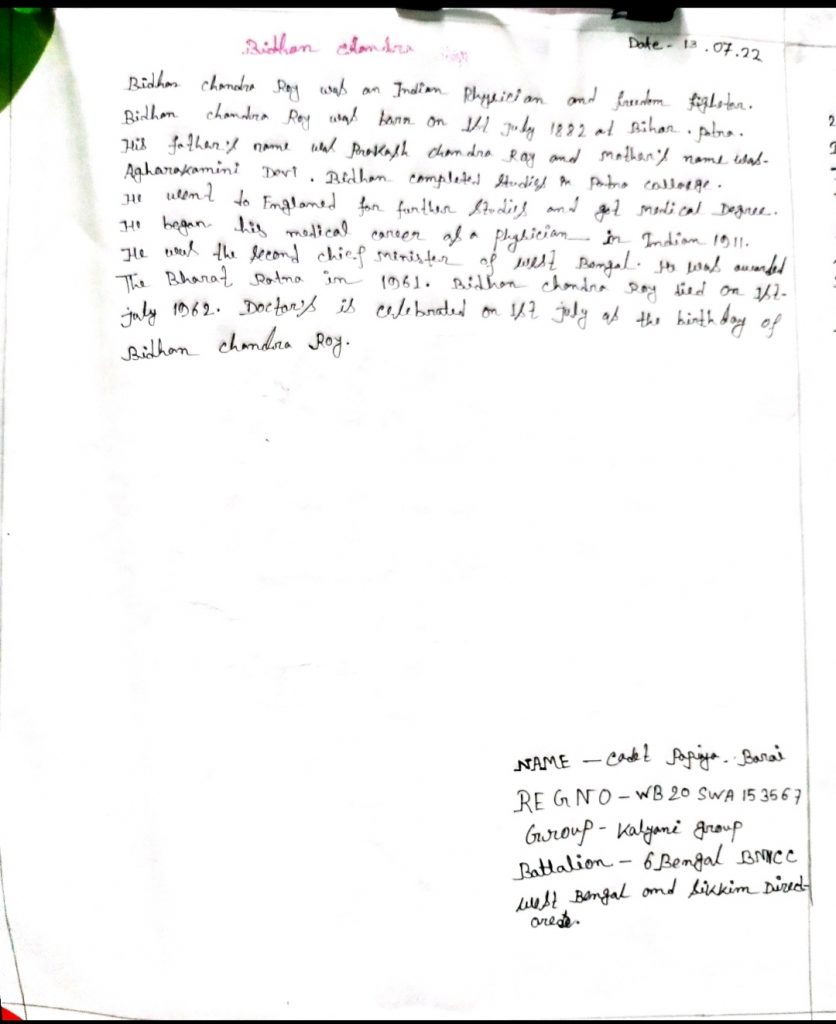 Bidhan chandra Roy
Date - 13.07.22
Bidhan chandra Roy was an Indian Physician and freedom fighter.
Bidhan chandra Roy was born on 1st July 1882 at Bihar. patna.
His father's name was Prakash chandra Roy and mother's name was-
Agharakamini Devi. Bidhan completed studies in Patna college.
He went to Englaned for further studies and got medical Degree.
He began his medical career as a physician in Indian 1911.
He was the second chief minister of west Bengal. He was awarded
The Bharat Ratna in 1961. Bidhan chandra Roy died on 1st-
july 1962. Doctor's is celebrated on 1st july as the birthday of
Bidhan chandra Roy.
NAME - cadet Papiya. Barai
REG NO - WB20 SWA 153567
Group - Kalyani group
Battalion - 6 Bengal BN NCC
west Bengal and Sikkim Direct-
orate.
2